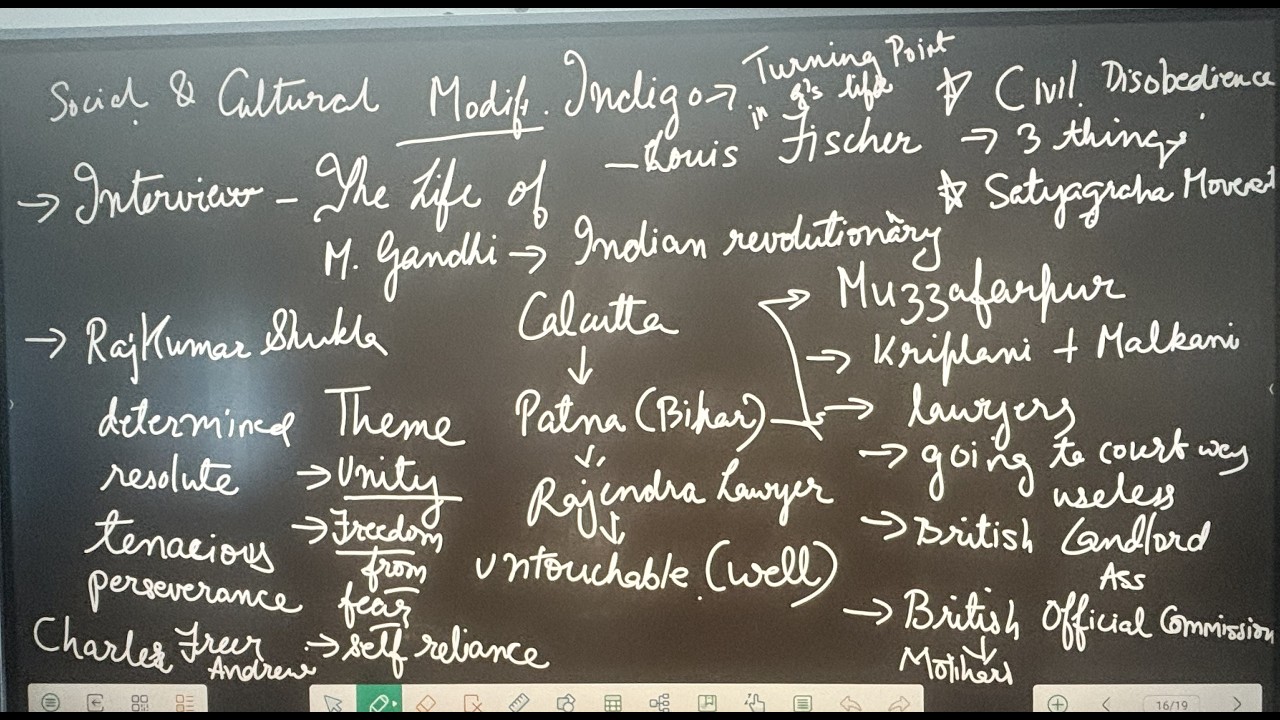 Social & Cultural Modif. Indigo → Turning Point
in g's life
☆ Civil Disobedience
– Louis Fischer → 3 things
☆ Satyagraha Movement
→ Interview – The Life of
M. Gandhi → Indian revolutionary
→ RajKumar Shukla
determined
resolute
tenacious
perseverance
Charles Freer
Andrews
Theme
→ Unity
→ Freedom
from
fear
→ self reliance
Calcutta
↓
Patna (Bihar)
↓
Rajendra Lawyer
↓
untouchable (well)
→ Muzzafarpur
→ Kriplani + Malkani
→ lawyers
→ going to court was
useless
→ British Landlord
Ass
→ British Official Commission
↓
16/19